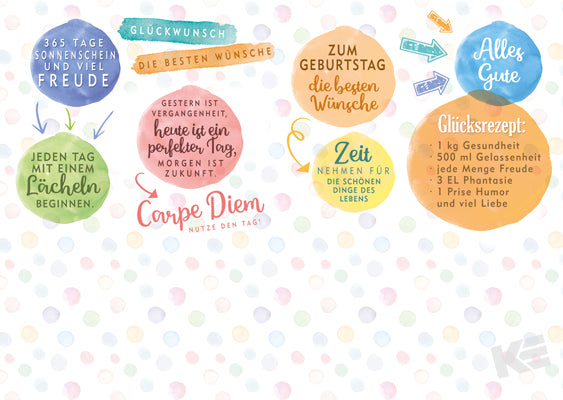 365 TAGE
SONNENSCHEIN
UND VIEL
FREUDE
GLÜCKWUNSCH
DIE BESTEN WÜNSCHE
JEDEN TAG
MIT EINEM
Lächeln
BEGINNEN.
GESTERN IST
VERGANGENHEIT,
heute ist ein
perfekter Tag,
MORGEN IST
ZUKUNFT.
Carpe Diem
NUTZE DEN TAG!
ZUM
GEBURTSTAG
die besten
Wünsche
Zeit
NEHMEN FÜR
DIE SCHÖNEN
DINGE DES
LEBENS
Alles
Gute
Glücksrezept:
· 1 kg Gesundheit
· 500 ml Gelassenheit
· jede Menge Freude
· 3 EL Phantasie
· 1 Prise Humor
und viel Liebe